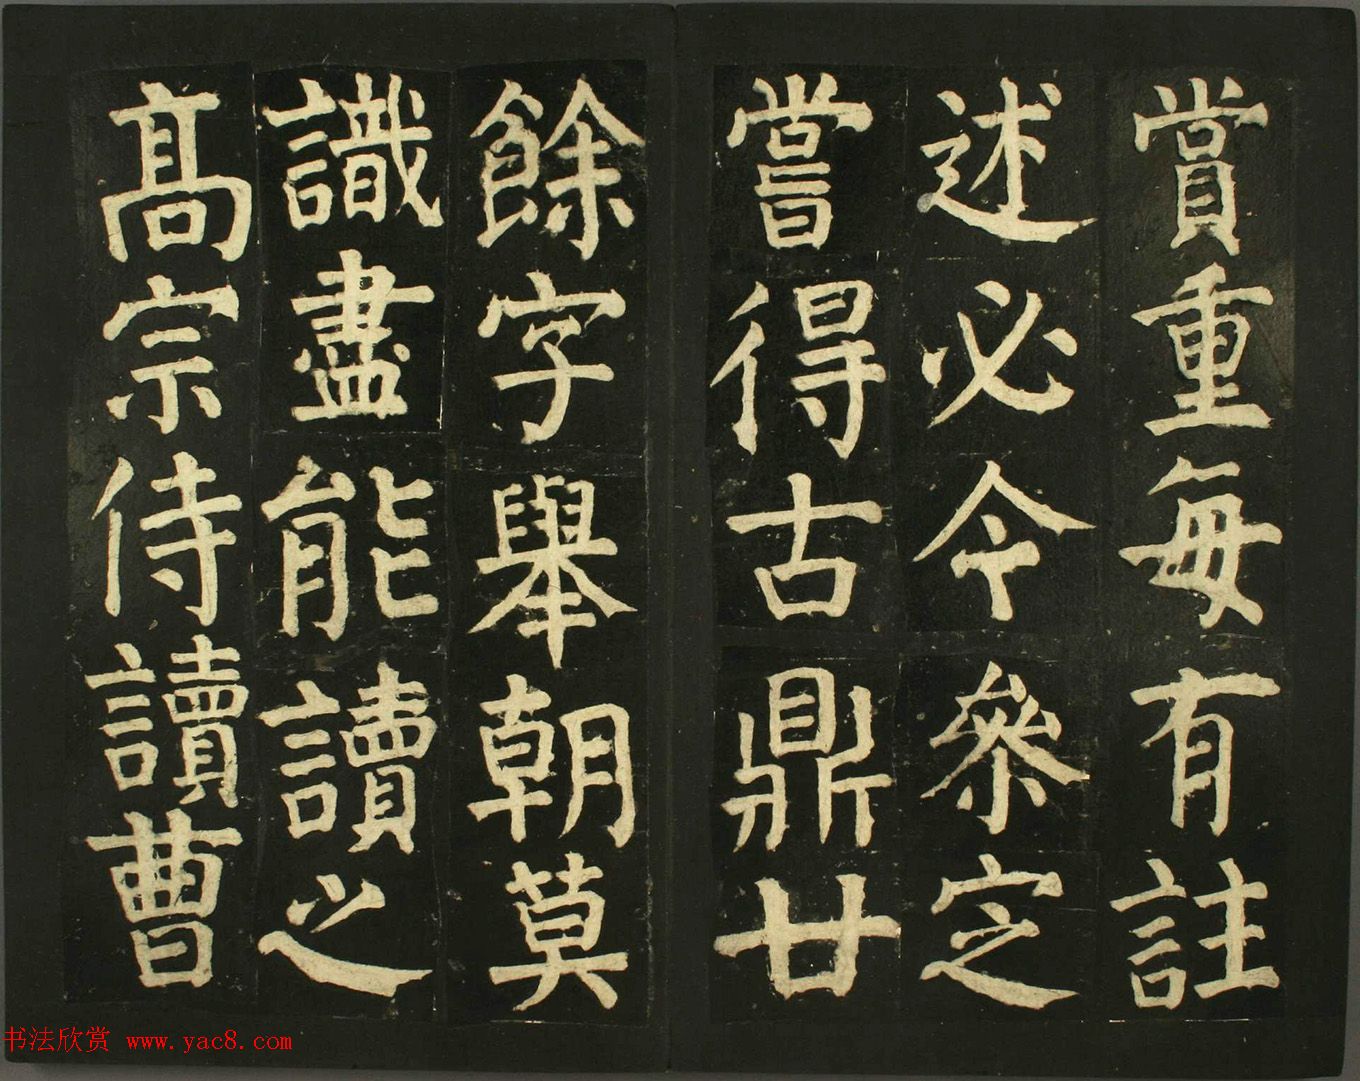 賞重每有註
述必令參定
嘗得古鼎廿
餘字舉朝莫
識盡能讀之
高宗侍讀曹
书法欣赏 www.yac8.com